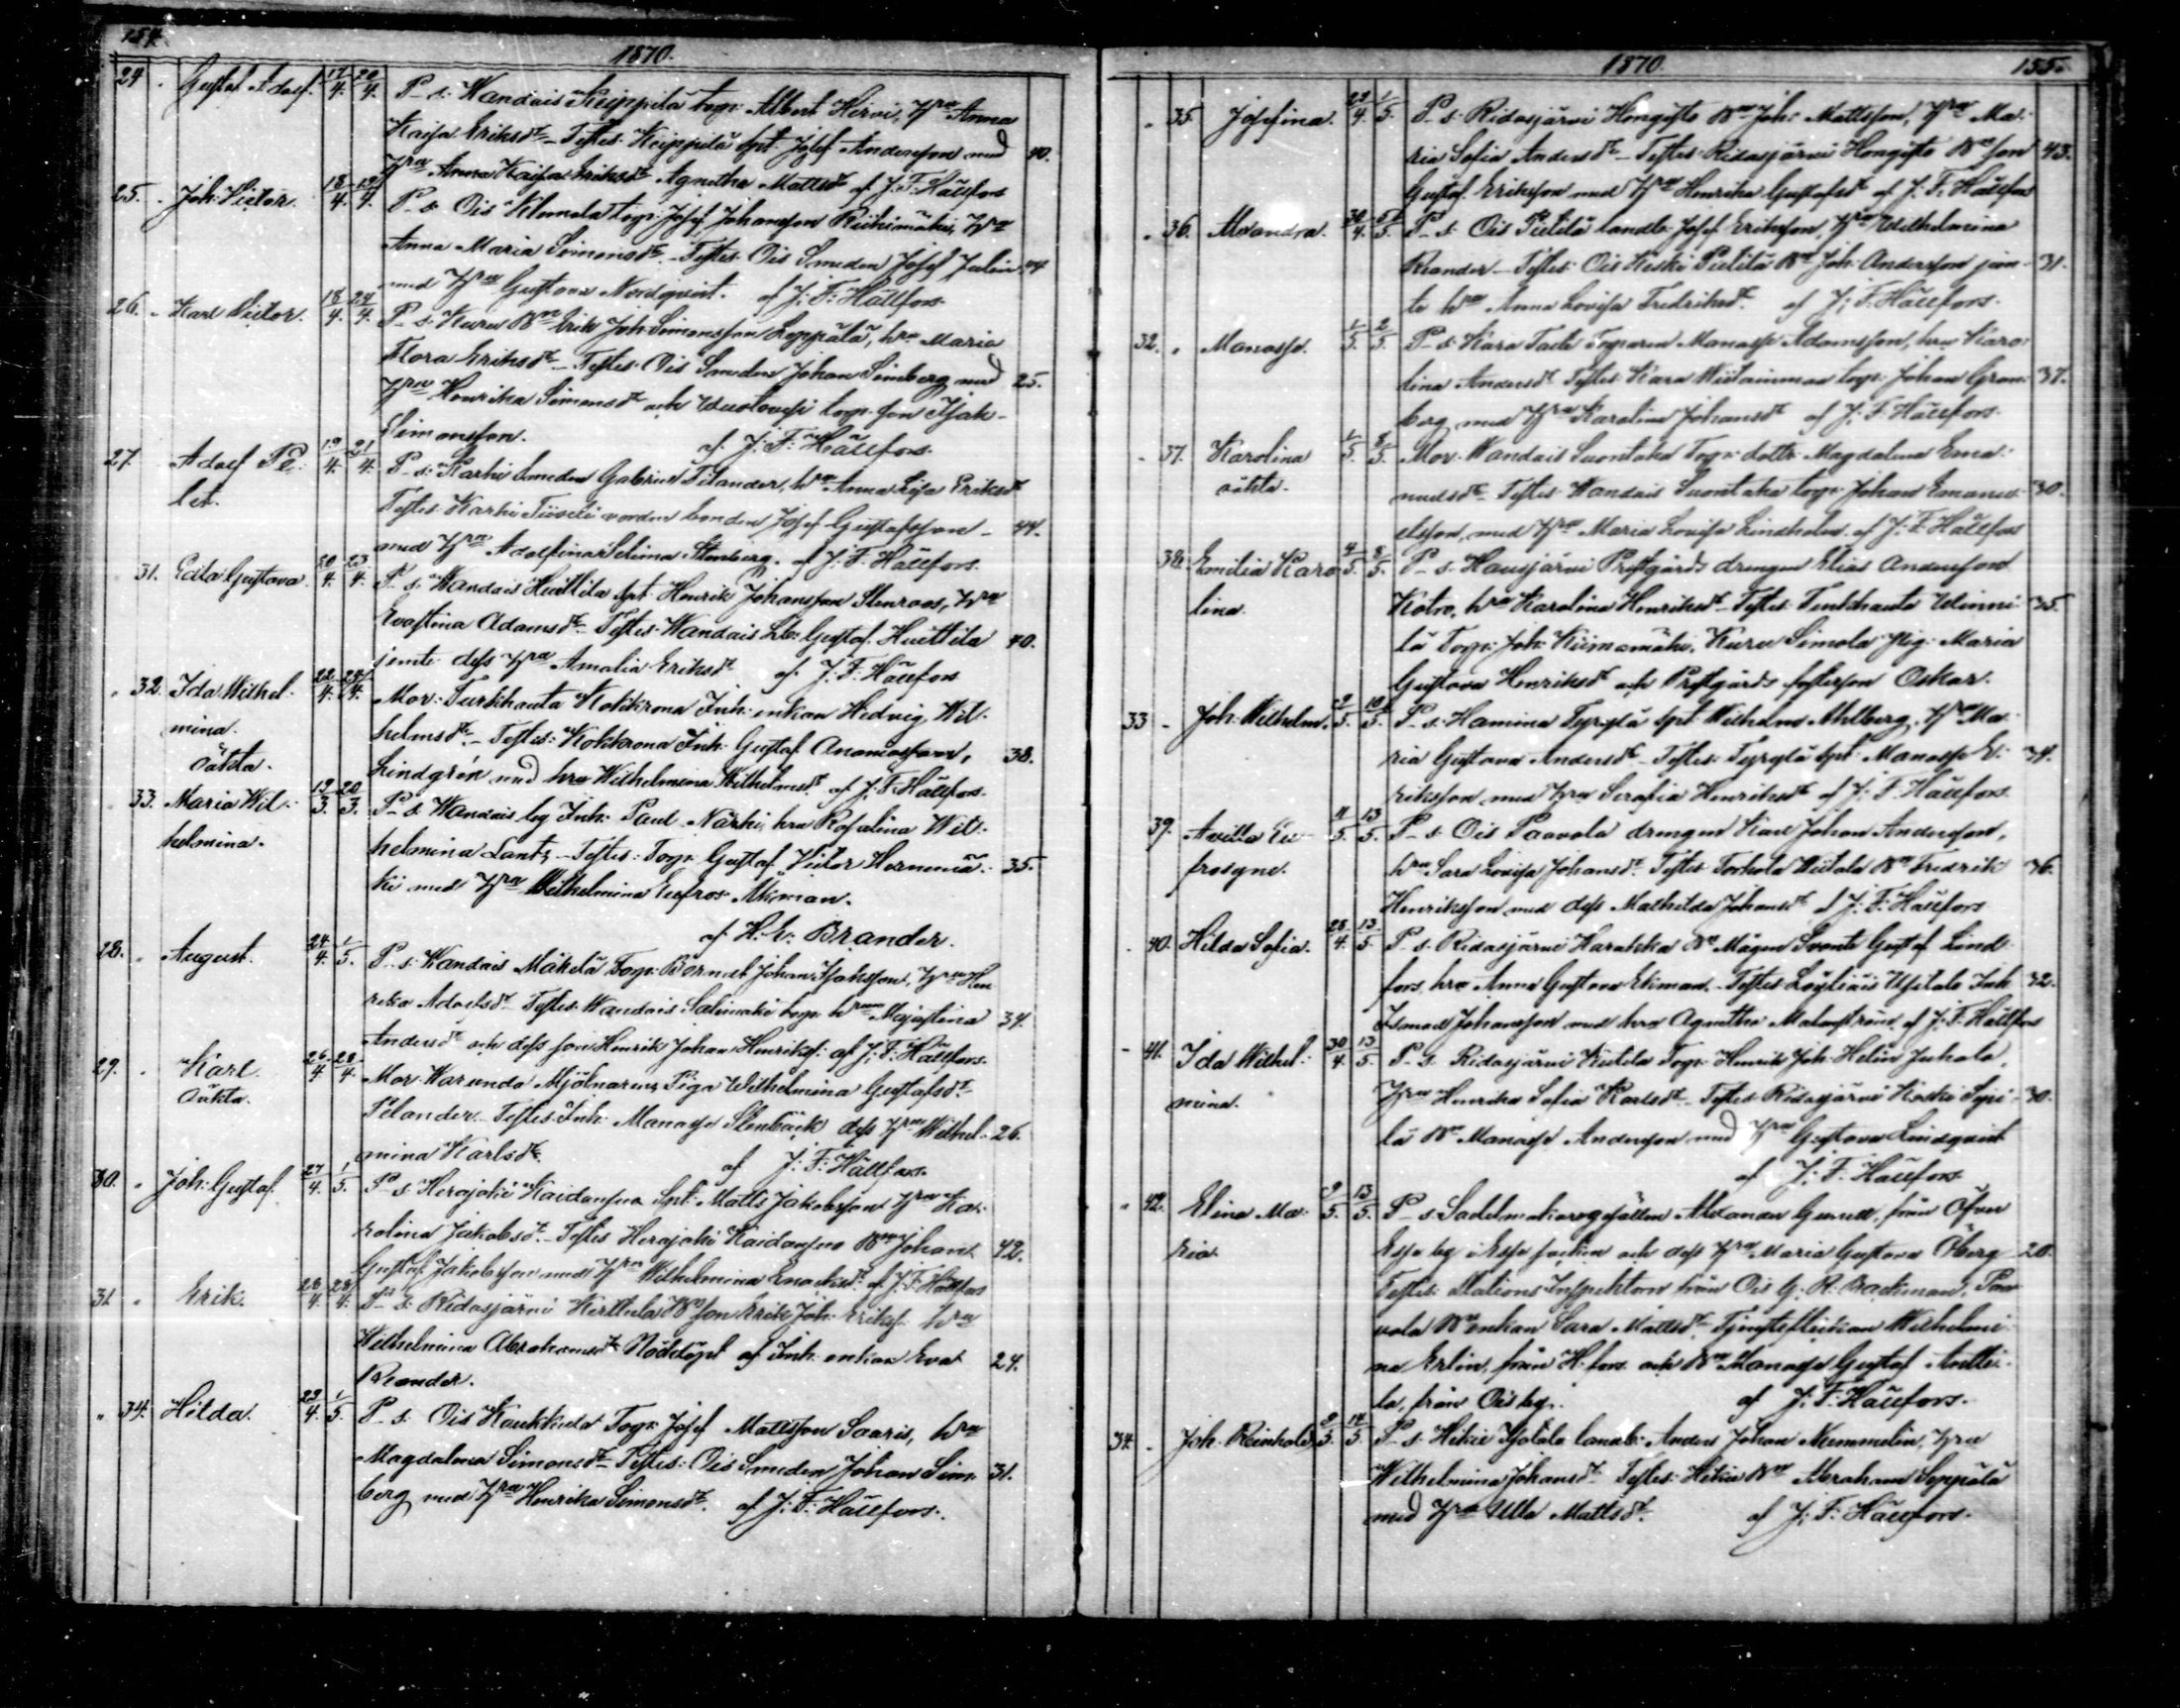 154.
1870.
24 . Gustaf Adolf. 17/4. 20/4. P_s: Wandais Keippilä torp: Albert Hirvi, Hru Anna
Kaisa Eriksdr_ Testes: Keippilä spt: Josef Andersson med 40.
Hru Anna Kaisa Eriksdr Agnetha Mattsdr af J: F: Hällfors
25. . Joh: Victor. 18/4. 19/4. P_s: Ois Kilomela torp: Josef Johansson Riihimäki, Hru
Anna Maria Simonsdr._ Testes: Ois Smeden Josef Julin 44
med Hru Gustava Nordqvist. af J: F: Hällfors.
26. „ Karl Victor. 18/4. 24/4. P_s: Kuru Bn Erik Joh: Simonsson Seppälä, hu Maria
Flora Eriksdr_ Testes: Ois Smeden Johan Simberg med 25.
Hru Henrika Simonsdr och torp: son Isak
Simonsson. af J: F: Hällfors.
27. Adolf Fe: 19/4. 21/4. P_s: Karhi Smeden Gabriel Felander, hu Anna Lisa Eriksdr
lix.
Testes: Karhi bonden Josef Gustafsson _ 44.
med Hru Adolfina Selima Stenberg. af J: F: Hällfors.
31. Edla Gustava. 20/4. 23/4. P_s: Wandais Huittila spt: Henrik Johansson Stenroos, Hru
Evastina Adamsdr_ Testes: Wandais Gustaf Huittila 40.
jemte dess Hru Amalia Eriksdr af J: F: Hällfors
„ 32. Ida Wilhel: 22/4. 24/4. Mor: Turkhauta Kokkrona Inh: enkan Hedvig Wil:
mina.
oäkta.
helmsdr._ Testes: Kokkrona Inh: Gustaf Ananiasson, 38.
Lindgrén med hru Wilhelmina Wilhelmsdr af J: F: Hällfors.
33. Maria Wil: 19/3. 20/3. P_s: Wandais by Inh: Paul Närhi, hru Rosalina Wil:
helmina.
helmina Lantz_ Testes: Torp: Gustaf Victor 35.
med Hru Wilhelmina Eufros: Åkman.
af H. Brander.
28. „ August. 24/4. 1/5. P_s: Wandais Mäkelä Torp: Johan Isaksson, Hru Hen
rika Adaelsdr_ Testes: Wandais Salimäki torp: hru Majastina 34.
Andersdr och dess son Henrik Johan Henrikss: af J: F: Hällfors.
29. „ Karl. 26/4. 28/4. Mor: Warunda Mjölnarens Piga Wilhelmina Gustafsdr
Oäkta.
Felander_ Testes: Inh: Manasse Stenbäck dess Hru Wilhel: 26.
mina Karlsdr. af J: F: Hällfors.
30. „ Joh: Gustaf. 27/4. 1/5. P_s: Herajoki Kaidansuo Spt: Matts Jakobsson Hru Ka:
rolina Jakobsdr_ Testes: Herajoki Kaidansuo Bn Johan 42.
Gustaf Jakobsson med Hru Wilhelmina Enocksdr af J: F: Hällfors
31. „ Erik. 28/4. 28/4. P_s: Ridasjärvi Kerttula Bn son Erik Joh: Eriks: hru
Wilhelmina Abrahamsdr Nöddöpt af Inh: enkan Eva 24.
Reander.
„ 34. Hilda. 29/4. 1/5. P_s: Ois Kaukkela Torp: Josef Mattsson Saaris, hru
Magdalena Simonsdr_ Testes: Ois Smeden Johan Sim 31.
berg med Hru Henrika Simonsdr. af J: F: Hällfors.
1870.
155.
„ 35. Josefina. 29/4. 1/5. P_s: Ridasjärvi Hongisto Bn Joh: Mattsson, Hru Ma:
ria Sofia Andersdr_ Testes: Ridasjärvi Hongisto Bn son 43.
Gustaf Eriksson med Hru Henrika Gustafsdr af J: F: Hällfors
„ 36. Alexandra. 30/4. 5. P_s: Ois Pietilä landb: Josef Eriksson, Hru Wilhelmina
Reander_ Testes: Ois Keski Pietilä Bn Joh: Andersson jem 31.
te hru Anna Lovisa Fredriksdr. af J: F: Hällfors.
32. „ Manasse. 1/5. 2/5. P_s: Kara Torparen Manasse Adamsson, hru Karo:
lina Andersdr Testes: Kara torp: Johan Gran: 37.
berg med Hru Karolina Johansdr af J: F: Hällfors.
„ 37. Karolina 1/5. 8/5. Mor: Wandais Suontaka Torp: dottr: Magdalena Ema:
oäkta.
nuelsdr_ Testes: Wandais Suontaka torp: Johan Emanu 30.
elsson, med Hru Maria Lovisa Lindholm. af J: F: Hällfors
38. Emilia Karo 4/5. 8/5. P_s: Hausjärvi Prestgårds drengen Elias Andersson
lina.
Kotro, hru Karolina Henriksdr_ Testes: Turkhauta 35.
lä Torp: Joh: Kiimamäki, Kuru Simola Pig: Maria
Gustava Henriksdr och Prestgårds fosterson Oskar.
33 _ Joh: Wilhelm. 9/5. 10/5. P_s: Hamina Tyrylä spt: Wilhelm Ahlberg, Hru Ma:
ria Gustava Andersdr_ Testes: Tyrylä spt: Manasse E: 34.
riksson med Hru Serafia Henriksdr af J: F: Hällfors.
39. Axilla Eu 11/5. 13/5. P_s: Ois Paavola drengen Karl Johan Andersson,
frosyne.
hru Sara Lovisa Johansdr. Testes: Torhola Wiitala Bn Fredrik 36.
Henriksson med dess Mathilda Johansdr af J: F: Hällfors
„ 40. Hilda Sofia. 28/4. 13/5. P_s: Ridasjärvi Harakka Bn Mågen Svante Gustaf Lind
fors, hru Anna Gustava Ekman. Testes: Löyliäis Usitalo Inh: 32.
Johansson med hru Agnetha Malmström af J: F: Hällfors
„ 41. Ida Wilhel: 30/4. 13/5. P_s: Ridasjärvi Torp: Henrik Joh: Helin Juhola,
mina.
Hru Henrika Sofia Karlsdr_ Testes: Ridasjärvi Koski Sipi 30.
lä Bn Manasse Andersson med Hru Gustava Lindqvist
af J: F: Hällfors
„ 42. Elina Ma: 9/5. 13/5. P_s: Sadelmakaregesällen Alexander från Öfver
ria.
Espo by i Espo socken och dess Hru Maria Gustava Öberg 20.
Testes: Stations Inspektorn från Ois G: R: Backman, Paa
vola Bn enkan Sara Mattsdr Tjensteflickan Wilhelmi
na Erlin, från H:fors och Bn Manasse Gustaf Anttil:
la, från Ois by. af J: F: Hällfors.
34. „ Joh: Reinhold. 9/5. 14/5. P_s: Hikiä Isotalo landb: Anders Johan Nummelin, Hru
Wilhelmina Johansdr_ Testes: Hikiä Bn Abraham Seppälä
med Hru Ulla Mattsdr. af J: F: Hällfors.